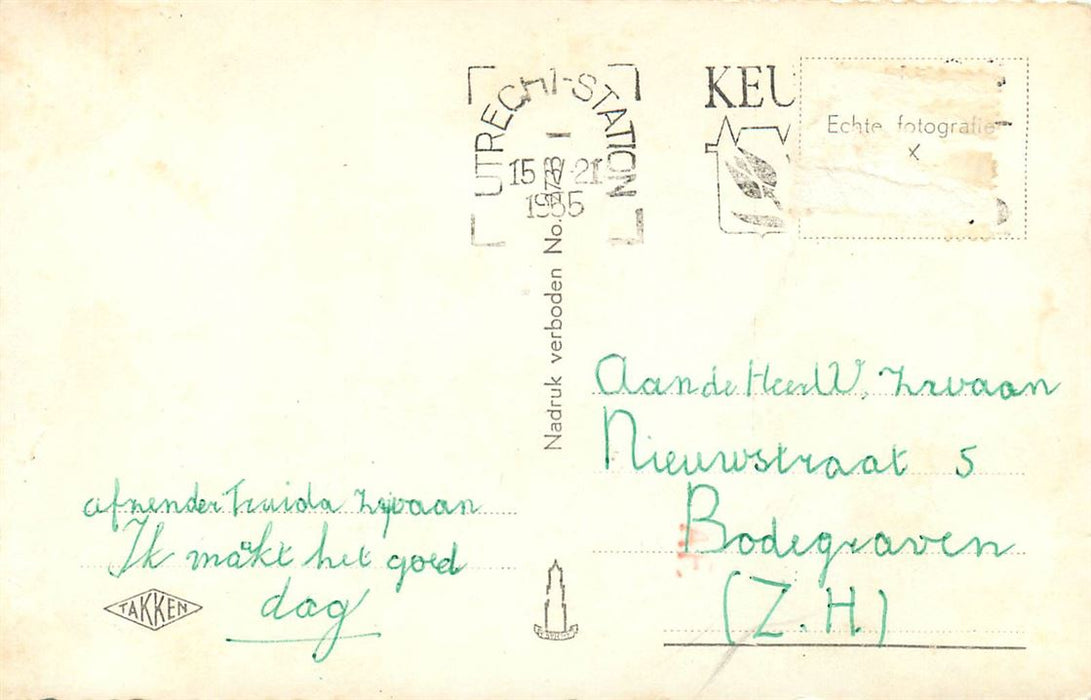 UTRECHT-STATION
15 21
1955
KEU
Echte fotografie
x
Nadruk verboden No.
Aan de Heer W. Zwaan
Nieuwstraat 5
Bodegraven
(Z.H)
afzender Truida Zwaan
Ik makt het goed
dag
TAKKEN